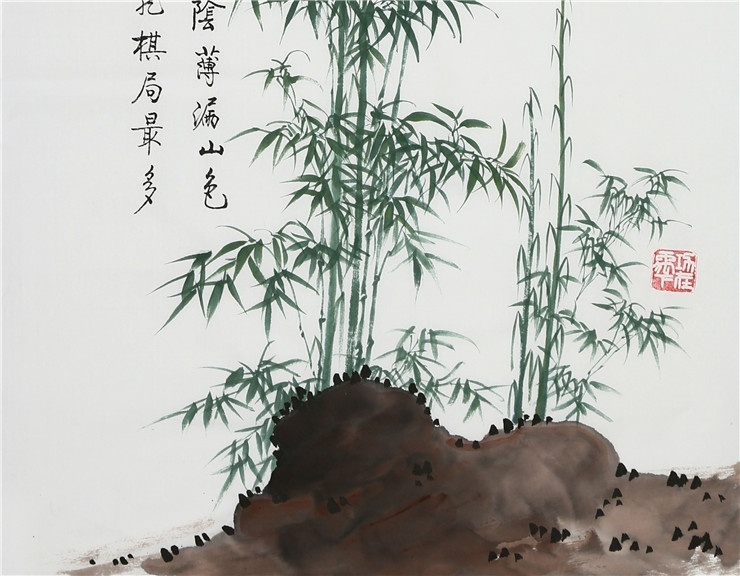 陰薄漏山色
棋局最多